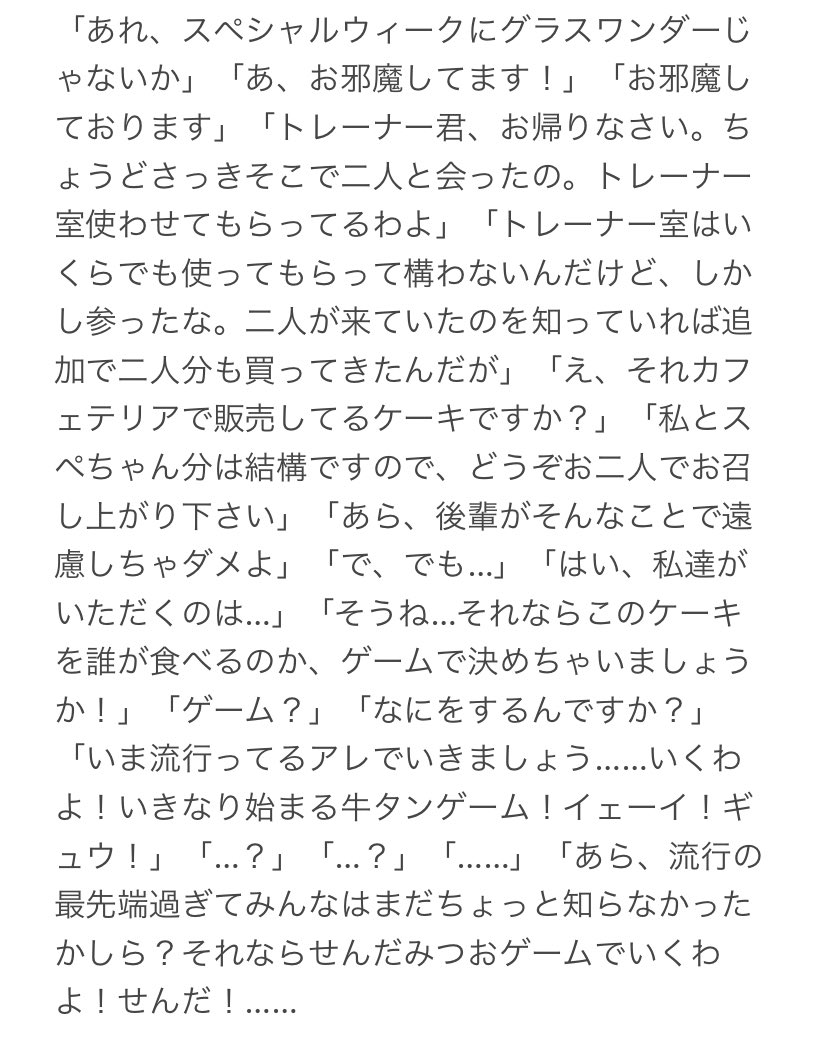 「あれ、スペシャルウィークにグラスワンダーじ
ゃないか」「あ、お邪魔してます！」「お邪魔し
ております」「トレーナー君、お帰りなさい。ち
ょうどさっきそこで二人と会ったの。トレーナー
室使わせてもらってるわよ」「トレーナー室はい
くらでも使ってもらって構わないんだけど、しか
し参ったな。二人が来ていたのを知っていれば追
加で二人分も買ってきたんだが」「え、それカフ
ェテリアで販売してるケーキですか？」「私とス
ペちゃん分は結構ですので、どうぞお二人でお召
し上がり下さい」「あら、後輩がそんなことで遠
慮しちゃダメよ」「で、でも...」「はい、私達が
いただくのは...」「そうね...それならこのケーキ
を誰が食べるのか、ゲームで決めちゃいましょう
か！」「ゲーム？」「なにをするんですか？」
「いま流行ってるアレでいきましょう......いくわ
よ！いきなり始まる牛タンゲーム！イェーイ！ギ
ュウ！」「...？」「...？」「......」「あら、流行の
最先端過ぎてみんなはまだちょっと知らなかった
かしら？それならせんだみつおゲームでいくわ
よ！せんだ！......